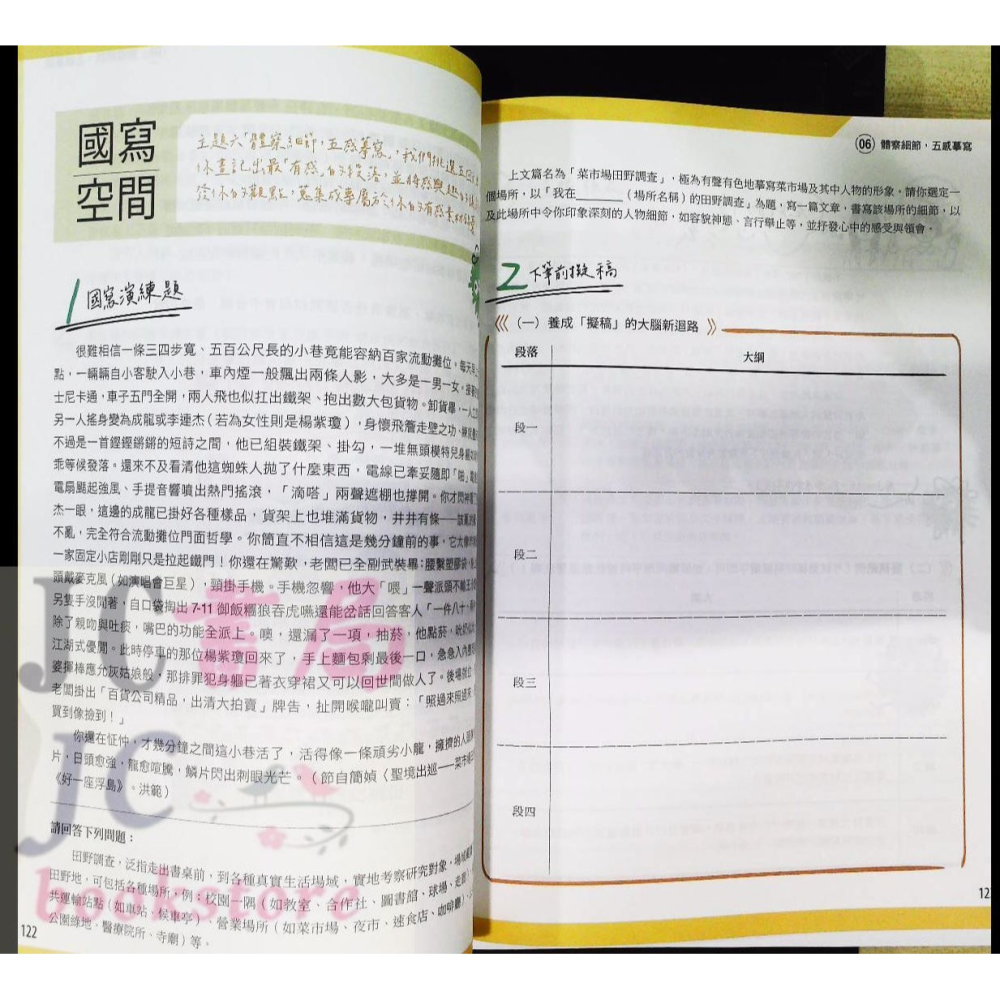 國寫
空間
主題六「體察細節，五感摹寫」，我們挑選五
你畫記出最「有感」的段落，並將感興趣的
於你的觀點，蒐集成專屬於你的有感素材
1 國寫演練題
很難相信一條三四步寬、五百公尺長的小巷竟能容納百家流動攤位。每天早上
點，一輛輛自小客駛入小巷，車內煙一般飄出兩條人影，大多是一男一女，接著
士尼卡通，車子五門全開，兩人飛也似扛出鐵架、抱出數大包貨物。卸貨畢，一人
另一人搖身變為成龍或李連杰（若為女性則是楊紫瓊），身懷飛簷走壁之功、
不過是一首鏗鏗鏘鏘的短詩之間，他已組裝鐵架、掛勾，一堆無頭模特兒身軀
乖等候發落。還來不及看清他這蜘蛛人拋了什麼東西，電線已牽妥隨即「啪」
電扇颳起強風、手提音響噴出熱門搖滾，「滴嗒」兩聲遮棚也撐開。你才閃神
杰一眼，這邊的成龍已掛好各種樣品，貨架上也堆滿貨物，井井有條——
不亂，完全符合流動攤位門面哲學。你簡直不相信這是幾分鐘前的事，它太像
一家固定小店剛剛只是拉起鐵門！你還在驚歎，老闆已全副武裝畢：腰繫塑膠
頭戴麥克風（如演唱會巨星），頸掛手機。手機忽響，他大「喂」一聲派頭不輸
另隻手沒閒著，自口袋掏出 7-11 御飯糰狼吞虎嚥還能岔話回答客人「一件八十，
除了親吻與吐痰，嘴巴的功能全派上。噢，還漏了一項，抽菸，他點菸，
江湖式優閒。此時停車的那位楊紫瓊回來了，手上麵包剩最後一口，急急入內
婆揮棒應允灰姑娘般，那排罪犯身軀已著衣穿裙又可以回世間做人了。後場
老闆掛出「百貨公司精品，出清大拍賣」牌告，扯開喉嚨叫賣：「照過來照過來，
買到像撿到！」
你還在怔忡，才幾分鐘之間這小巷活了，活得像一條頑劣小龍，擁擠的人
片，日頭愈強，龍愈喧騰，鱗片閃出刺眼光芒。（節自簡媜〈聖境出巡——菜市場
《好一座浮島》。洪範）
請回答下列問題：
田野調查，泛指走出書桌前，到各種真實生活場域，實地考察研究對象，場域
田野地，可包括各種場所，例：校園一隅（如教室、合作社、圖書館、球場、走
共運輸站點（如車站、候車亭）、營業場所（如菜市場、夜市、速食店、咖啡廳）、
公園綠地、醫療院所、寺廟）等。
122
JC 書局
JC
bookstore
06 體察細節，五感摹寫
上文篇名為「菜市場田野調查」，極為有聲有色地摹寫菜市場及其中人物的形象。請你選定一
個場所，以「我在______（場所名稱）的田野調查」為題，寫一篇文章，書寫該場所的細節，以
及此場所中令你印象深刻的人物細節，如容貌神態、言行舉止等，並抒發心中的感受與領會。
2 下筆前擬稿
（一）養成「擬稿」的大腦新迴路
段落 大綱
段一
段二
段三
段四